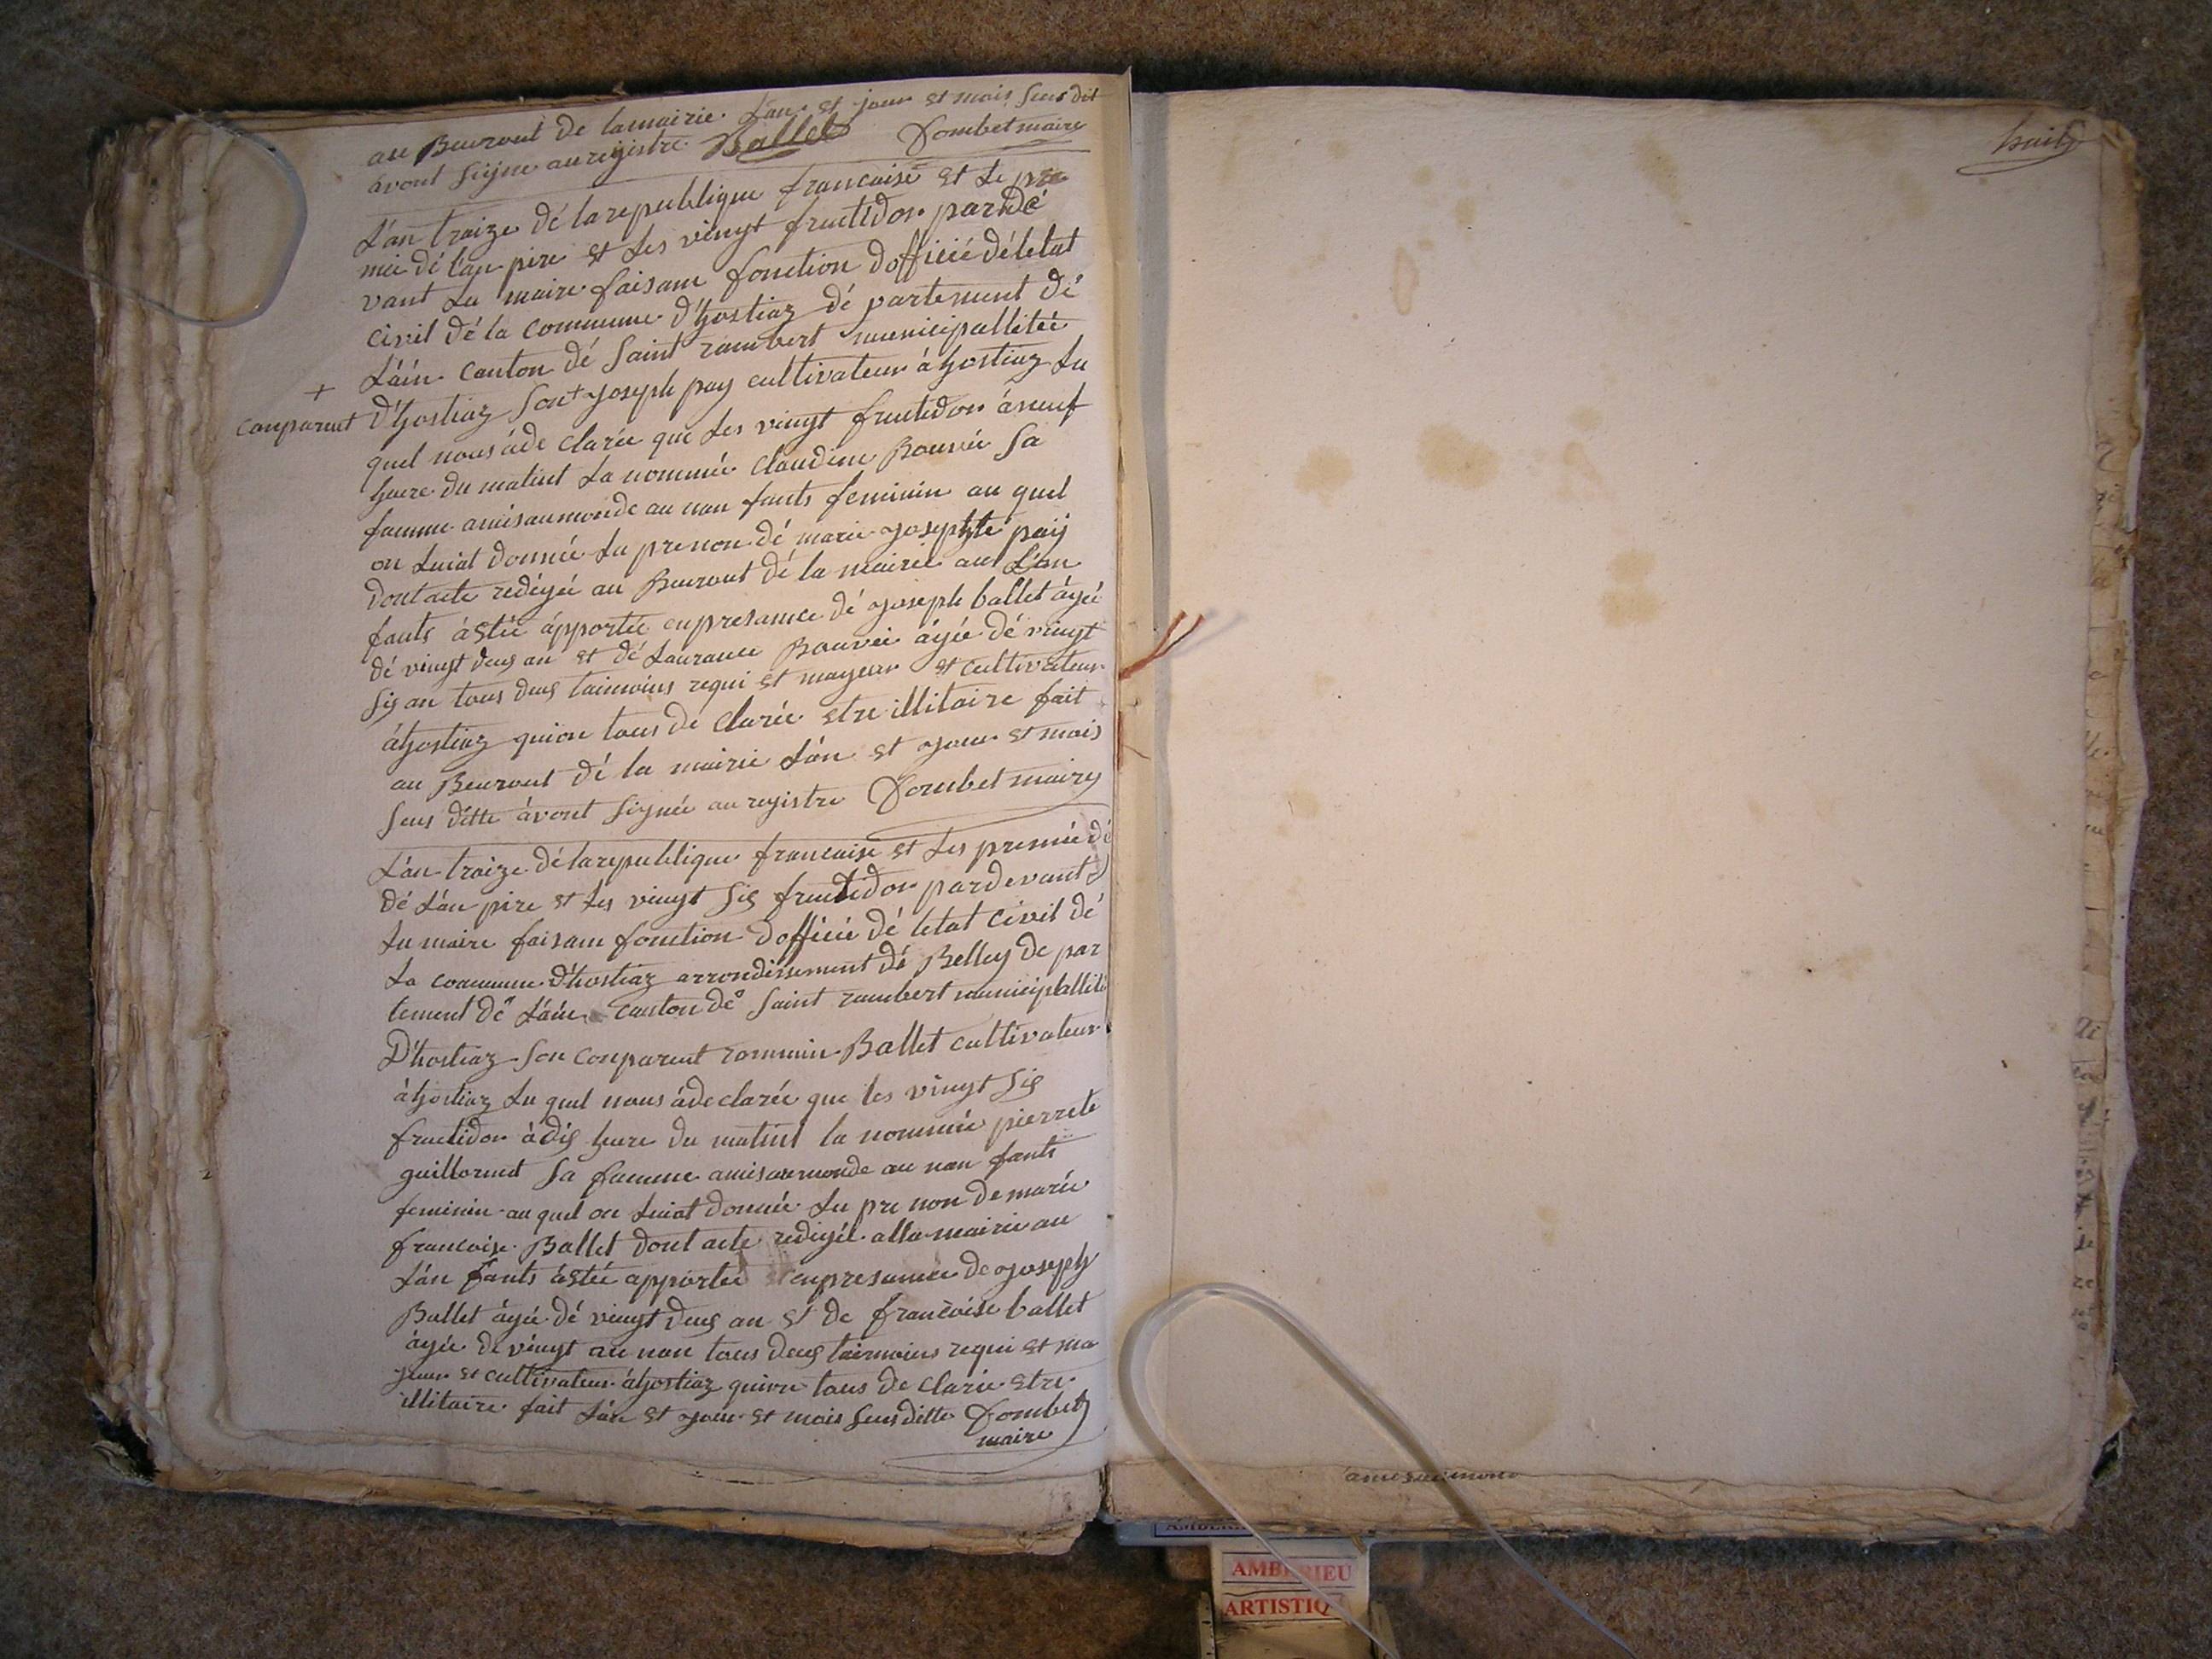 au Beurout de lamairie Lan et jour et mois sus dit
avont signe auregistre Ballet Dombet maire
L'an traize dé larepublique francaise et Le pre
mié dé l'an pire et Les vingt fructidor par dé
vant Lu maire faisant fonction d'officié dé letat
civil dé la commune d'hostiaz dé partement dé
L'áin canton dé Saint rambert municipallitéé
+
conparuet
D'hostiaz Son+ joseph pay cultivateur á hostiaz Lu
quel nous áde clarée que Les vingt fructidor á neuf
hure du matint La nommée claudine Bouvéé Sa
famme amisaumonde au nan fants feminin au quel
on Luiat donnée Lu prenon dé marie josephte paij
dont acte redigéé au Beurout dé la mairie aul L'an
fants á étéé ápportée enpresance dé joseph ballet ágéé
dé vingt deus an et dé Laurance Bouvéé ágéé dé vingt
sis an tous deus taimoins requi et mayeur et cultivateur
áhostiaz quion tous de clarée etre illitaire fait
au Beurout dé la mairie L'án et jour et mois
sus ditte ávont signéé au registre Dombet maire
L'an traize dé larepublique francaise et Les premié dé
dé L'án pire et Les vingt sis fructidor pardevant
Lu maire faisant fonction d'officié dé letat civil dé
La commune d'hostiaz arrondissement dé Belley de par
tement dé L'áin canton dé Saint rambert municipallité
D'hostiaz Son conparuet rommin Ballet cultivateur
á hostiaz Lu quel nous áde clarée que les vingt sis
fructidor á dis hure du matint la nommée pierrete
guillermet Sa famme amisaumonde au nan fants
feminin au quel on Luiat donnée Lu pre non de marie
francoise Ballet dont acte redigéé alla mairie au
L'án fants á étéé apportéé enpresance de joseph
Ballet ágéé dé vingt deus an et de francoise ballet
ágéé dé vingt an nan tous deus taimoins requi et ma
jeur et cultivateur áhostiaz quion tous de clarée etre
illitaire fait L'án et jour et mois sus ditte Dombet
maire
huit
AMBERIEU
ARTISTIQ